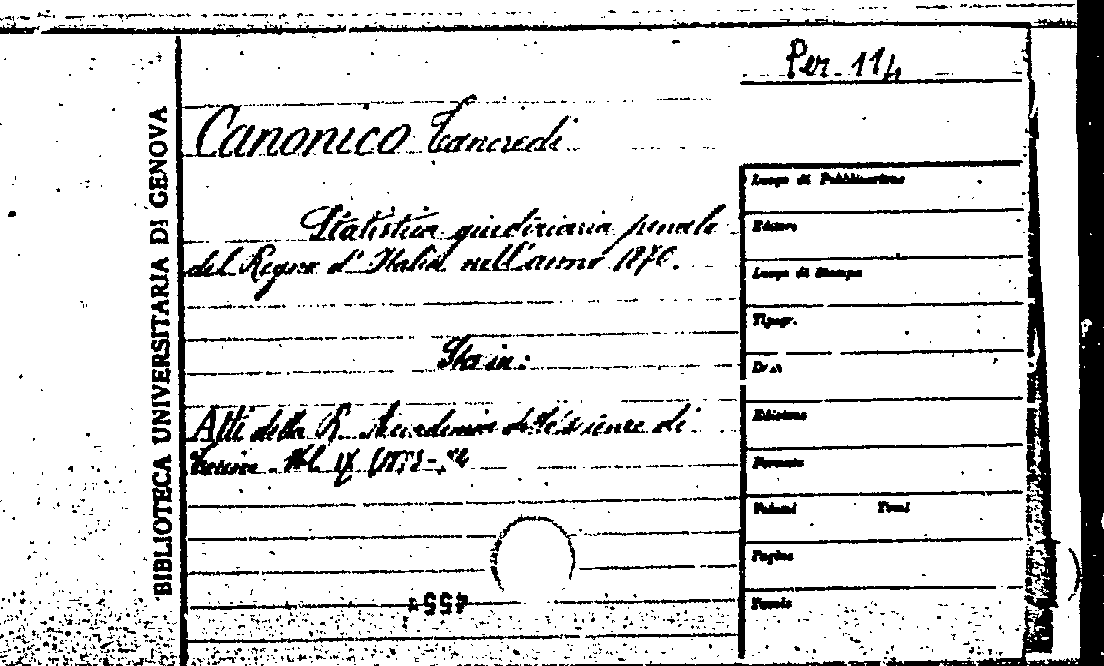 Per. 114
BIBLIOTECA UNIVERSITARIA DI GENOVA
Canonico Tancredi
Statistica giudiziaria penale
del Regno d'Italia nell'anno 1870.
Sta in:
Atti della R. Accademia delle Scienze di
Torino. Vol. IX (1873-74
Luogo di Pubblicazione
Editore
Luogo di Stampa
Tipogr.
Data
Edizione
Formato
Volumi Tomi
Pagine
Tavole